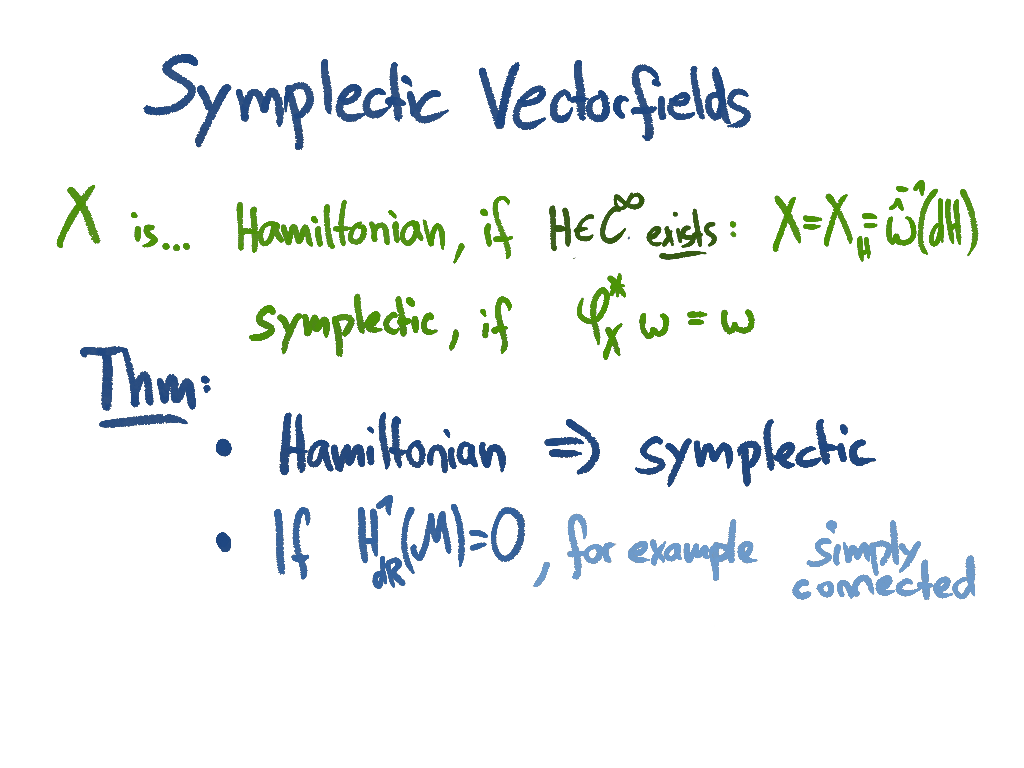 Symplectic Vectorfields
X is... Hamiltonian, if H∈C^∞ exists: X=X_H=ω̂^{-1}(dH)
symplectic, if φ_X^* ω = ω
Thm:
• Hamiltonian ⇒ symplectic
• If H^1_{dR}(M)=0, for example simply
connected